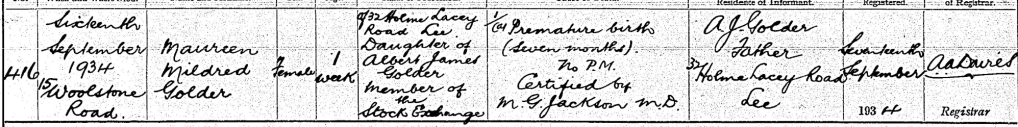 Residence of Informant.
Registered.
of Registrar.
416
Sixteenth
September
1934
15 Woolstone
Road.
Maureen
Mildred
Golder
Female
1
week
of 32 Holme Lacey
Road Lee.
Daughter of
Albert James
Golder
Member of
the
Stock Exchange
1(a) Premature birth
(Seven months).
No P.M.
Certified by
M. G. Jackson M.D.
A. J. Golder
Father
32 Holme Lacey Road
Lee
Seventeenth
September
1934
A. A. Davies
Registrar